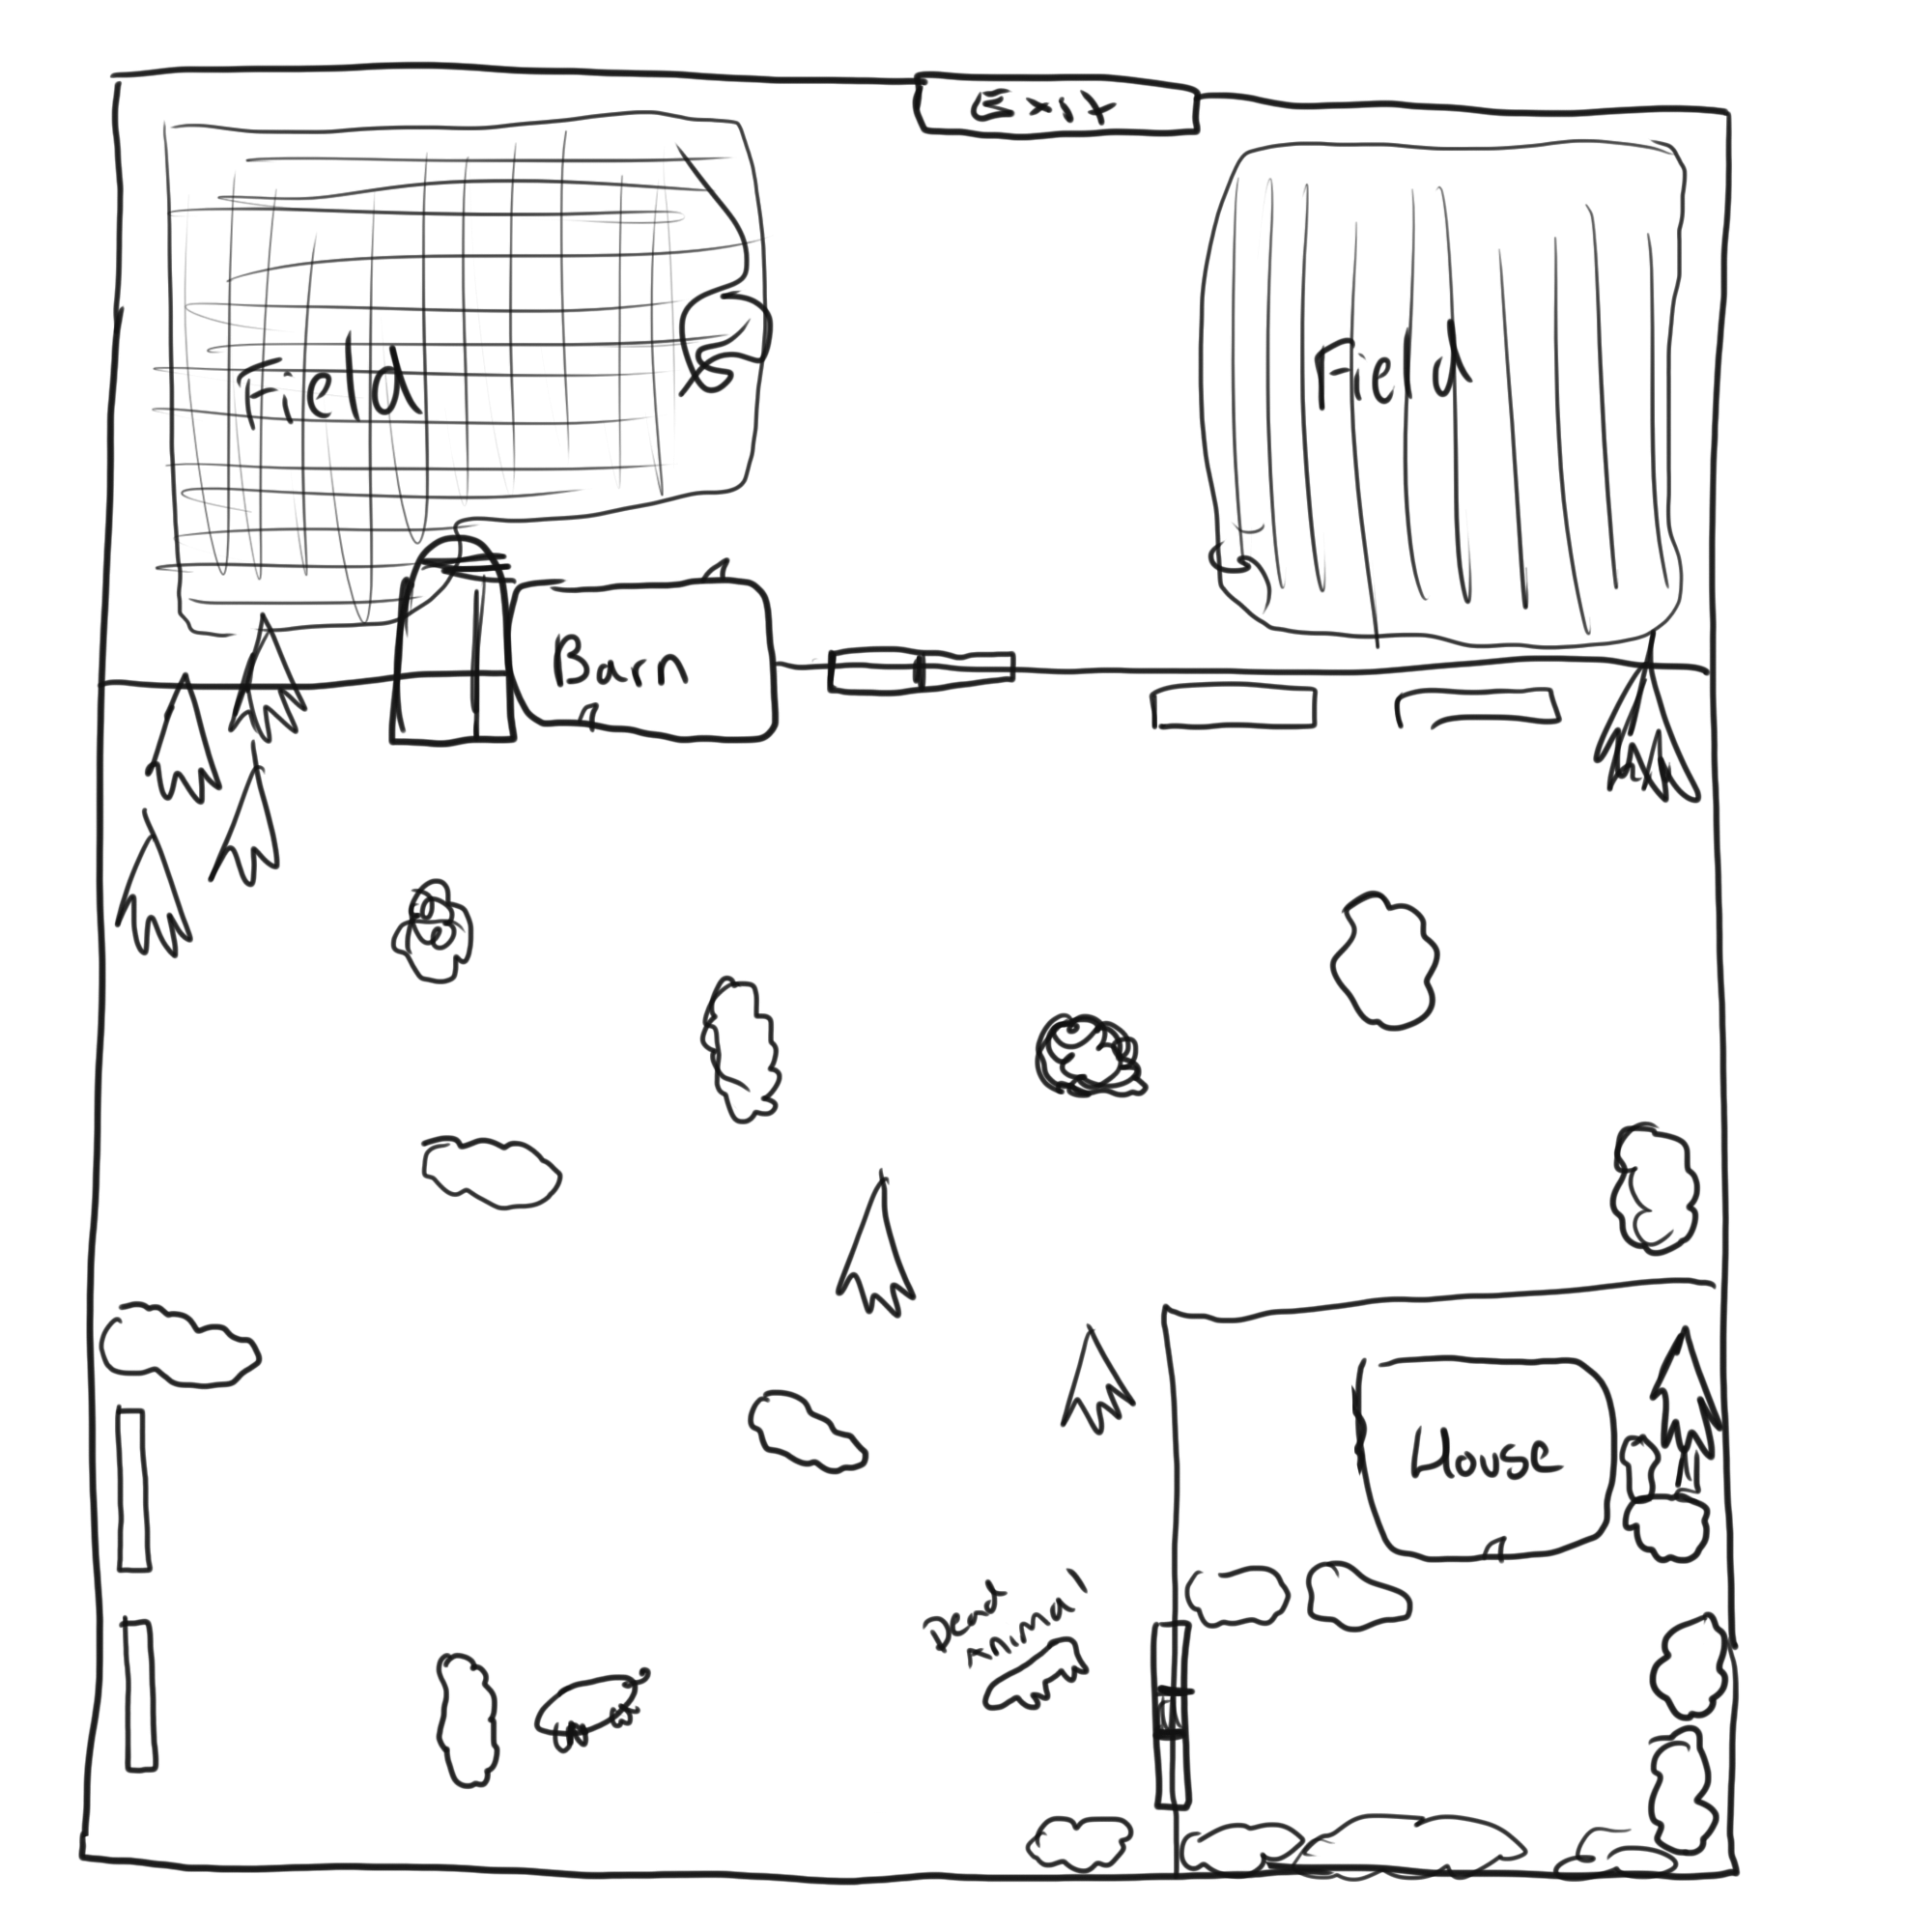 Exit
Field
Field
Barn
House
Dead
Animal